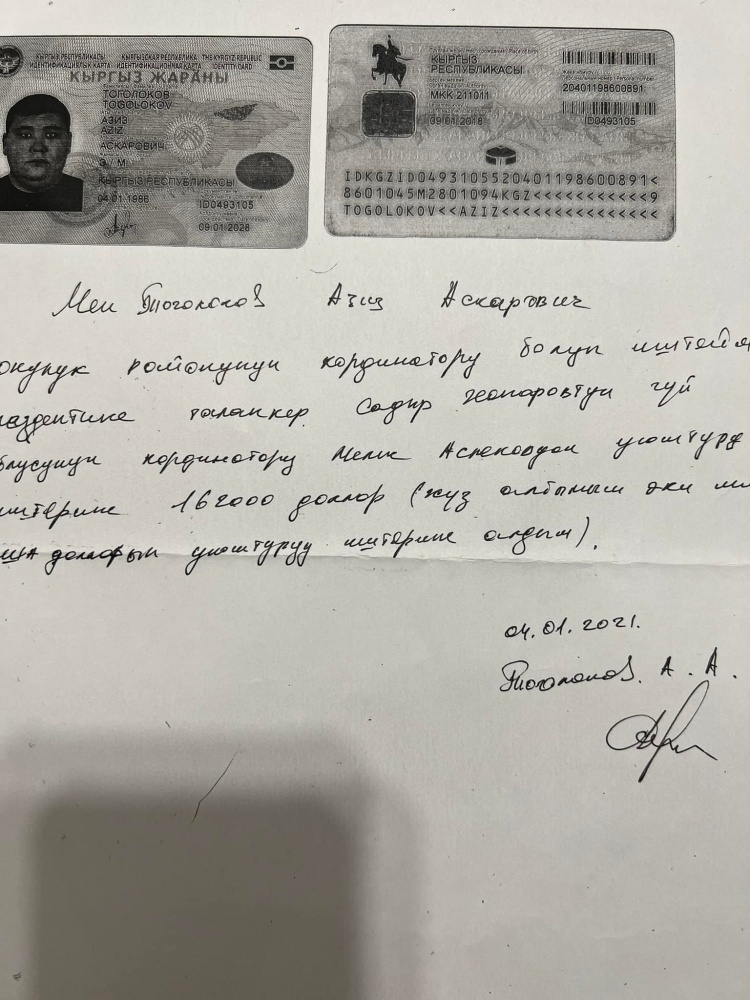 КЫРГЫЗ РЕСПУБЛИКАСЫ КЫРГЫЗСКАЯ РЕСПУБЛИКА THE KYRGYZ REPUBLIC
ИДЕНТИФИКАЦИЯЛЫК КАРТА ИДЕНТИФИКАЦИОННАЯ КАРТА IDENTITY CARD
КЫРГЫЗ ЖАРАНЫ
ТОГОЛОКОВ
TOGOLOKOV
АЗИЗ
AZIZ
АСКАРОВИЧ
Э / M
КЫРГЫЗ РЕСПУБЛИКАСЫ
04.01.1986
ID0493105
09.01.2028
КЫРГЫЗ
РЕСПУБЛИКАСЫ
МКК 211011
09.01.2018
20401198600891
ID0493105
IDKGZID0493105520401198600891<
8601045M2801094KGZ<<<<<<<<<<<9
TOGOLOKOV<<AZIZ<<<<<<<<<<<<<<<
Мен Тоголоков Азиз Аскарович
районунун кординатору болуп
талапкер Садыр Жапаровтун чуй
кординатору Мелис Аспековдан уюштуруу
иштерине 162000 доллар (жуз алтымыш эки
долларын уюштуруу иштерине алдым).
04.01.2021.
Тоголоков. А. А.